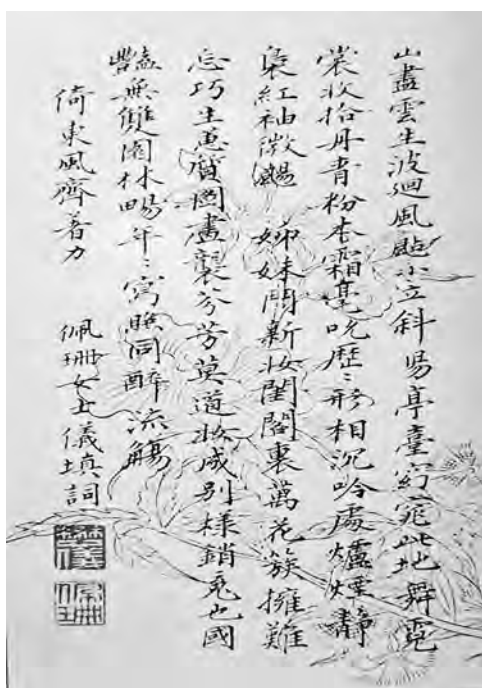 山盡雲生波迴風颭小立斜昜亭臺窈窕此地舞霓
裳收拾丹青粉本霜毫吮歷〻形相沉吟處爐煙靜
裊紅袖微颺 姊妹鬥新妝閨閣裏萬花簇擁難
忘巧生蕙質圖畫襲芬芳莫道妝成別樣銷魂也國
豔無雙園林暢年〻寫照同醉流觴
倚東風齊著力 佩珊女士儀填詞